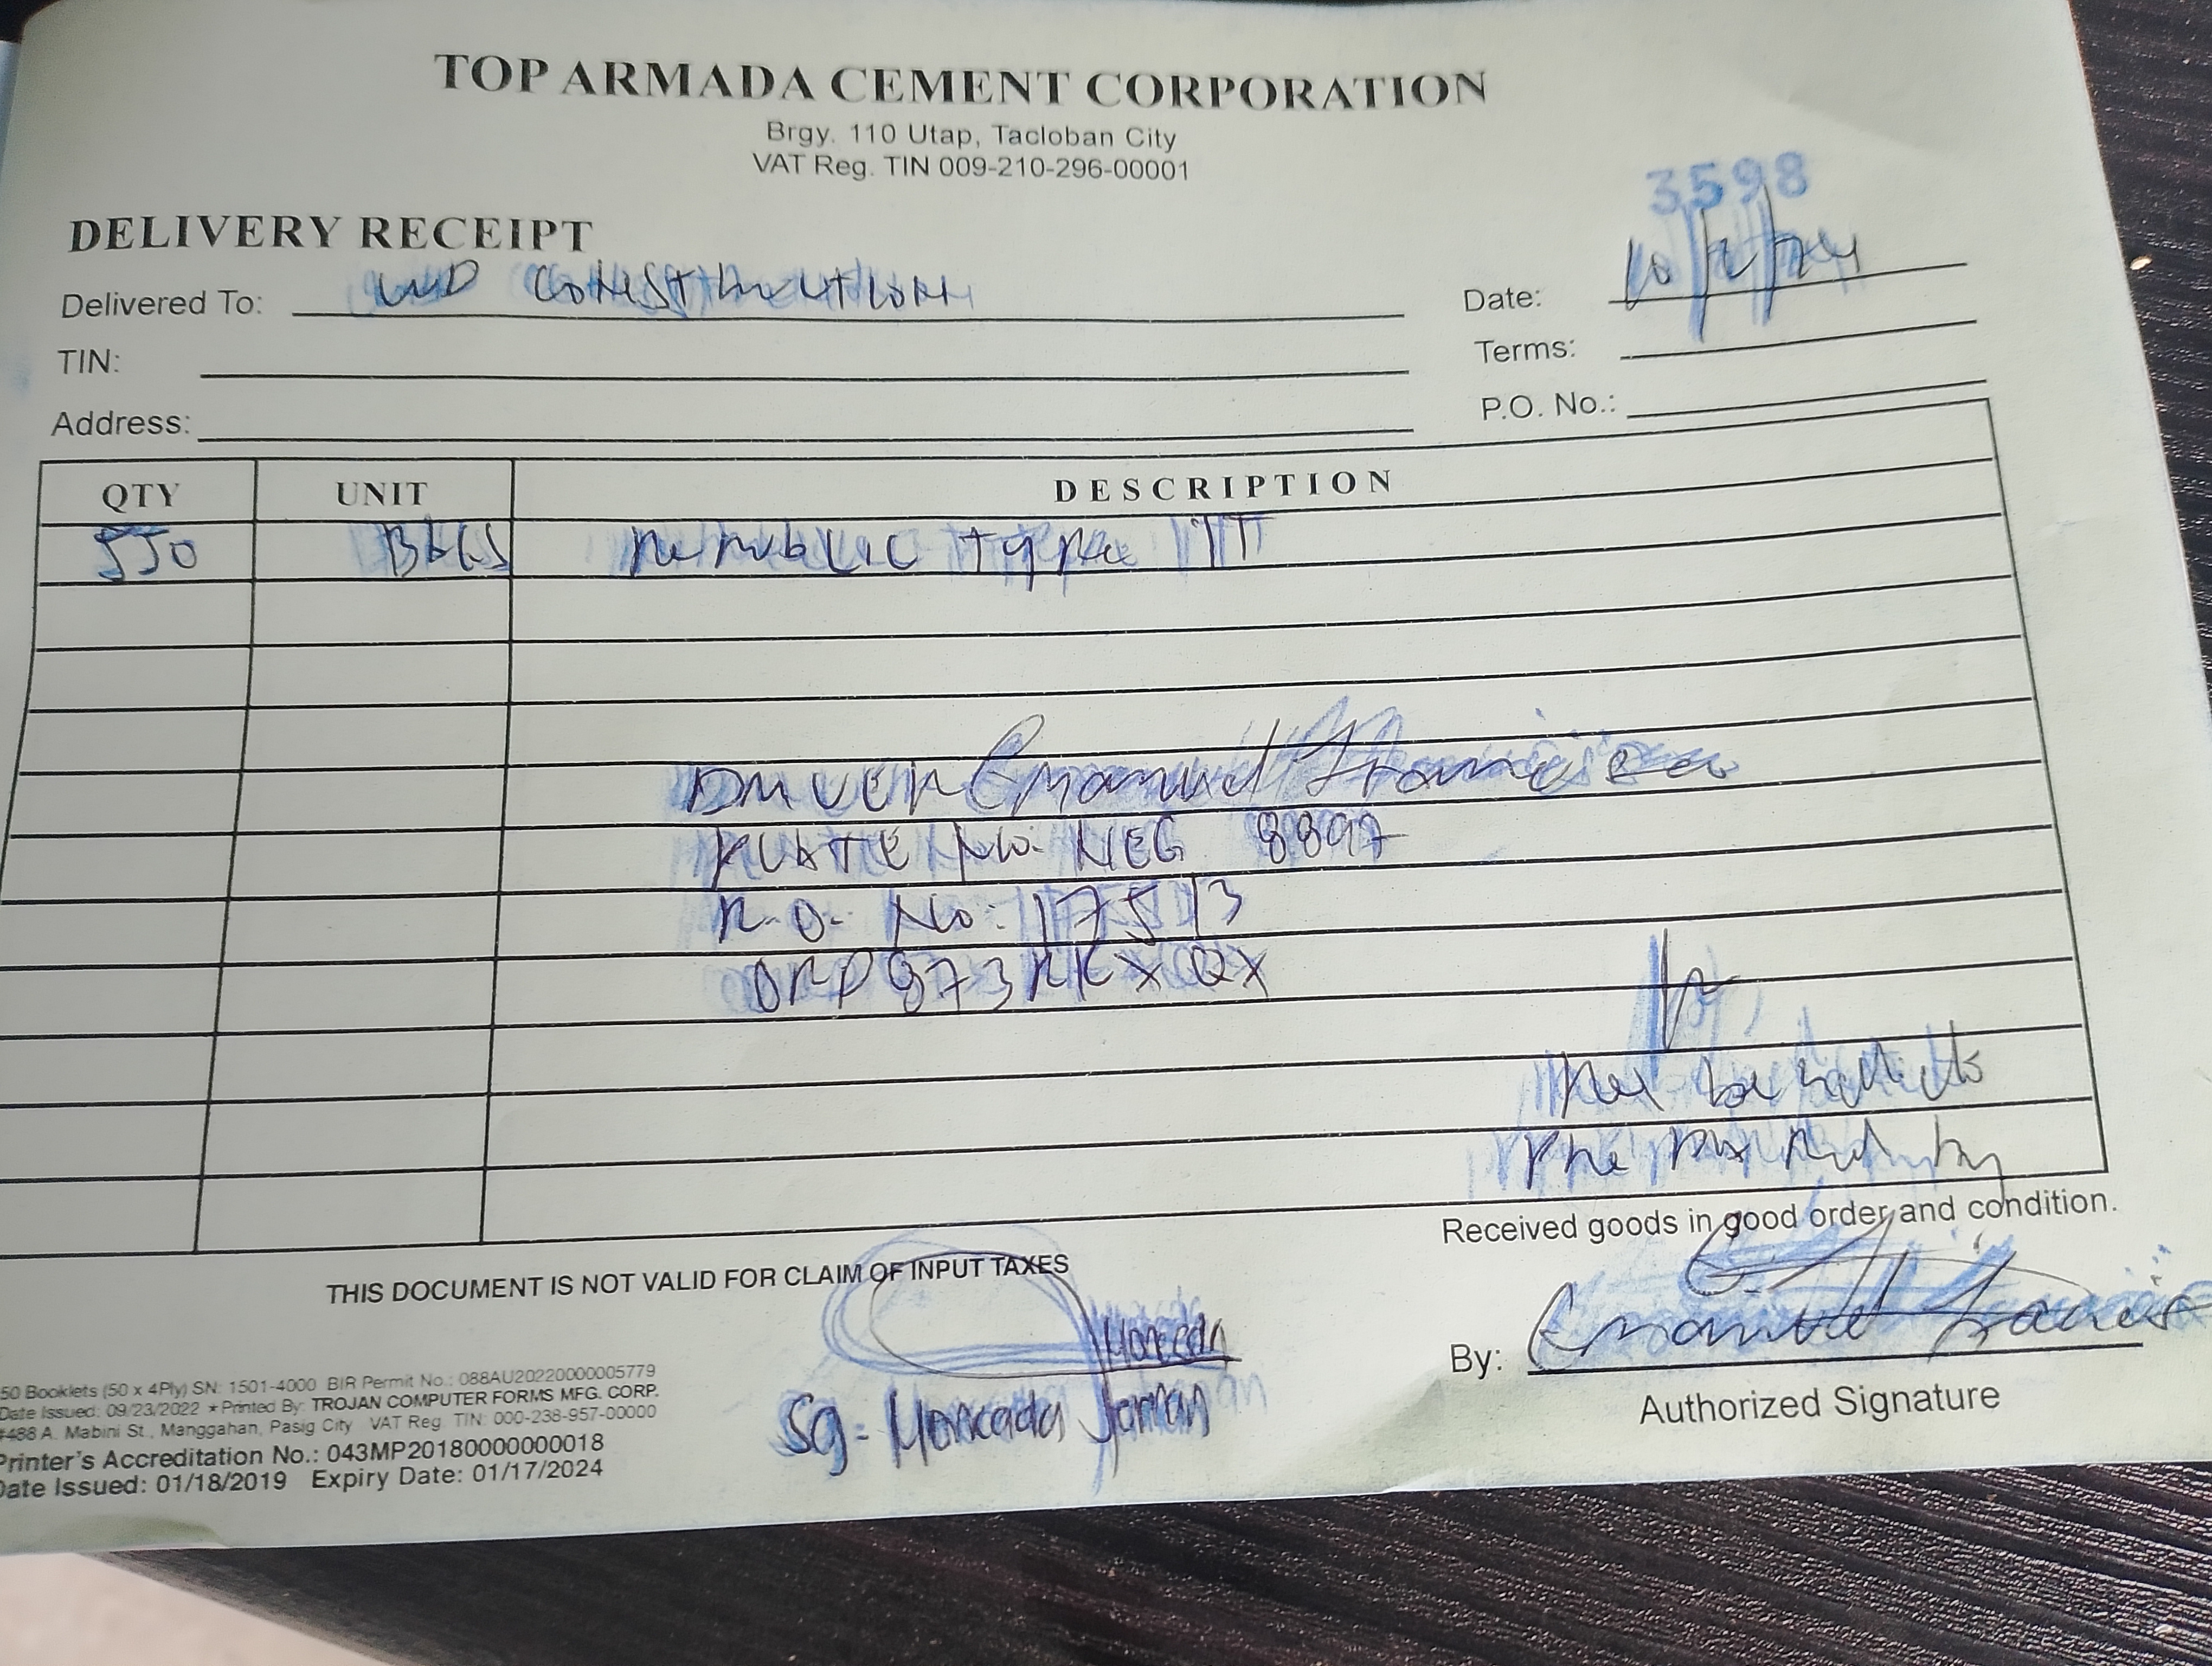 TOP ARMADA CEMENT CORPORATION
Brgy. 110 Utap, Tacloban City
VAT Reg. TIN 009-210-296-00001
3598
DELIVERY RECEIPT
Delivered To: WD Construction
Date: 10/2/24
TIN:
Terms:
Address:
P.O. No.:
QTY UNIT DESCRIPTION
550 BAGS Republic type 1T
Driver Emanuel Francisco
PLATE No. NEG 8897
P.O. No: 17513
ORD873RKXQX
Prepared by
Received goods in good order and condition.
THIS DOCUMENT IS NOT VALID FOR CLAIM OF INPUT TAXES
Moncada
By: Emanuel Francis
Sg- Moncada Jaman
Authorized Signature
50 Booklets (50 x 4Ply) SN: 1501-4000 BIR Permit No.: 088AU20220000005779
Date Issued: 09/23/2022 * Printed By: TROJAN COMPUTER FORMS MFG. CORP.
#488 A. Mabini St., Manggahan, Pasig City VAT Reg. TIN: 000-238-957-00000
Printer's Accreditation No.: 043MP20180000000018
Date Issued: 01/18/2019 Expiry Date: 01/17/2024